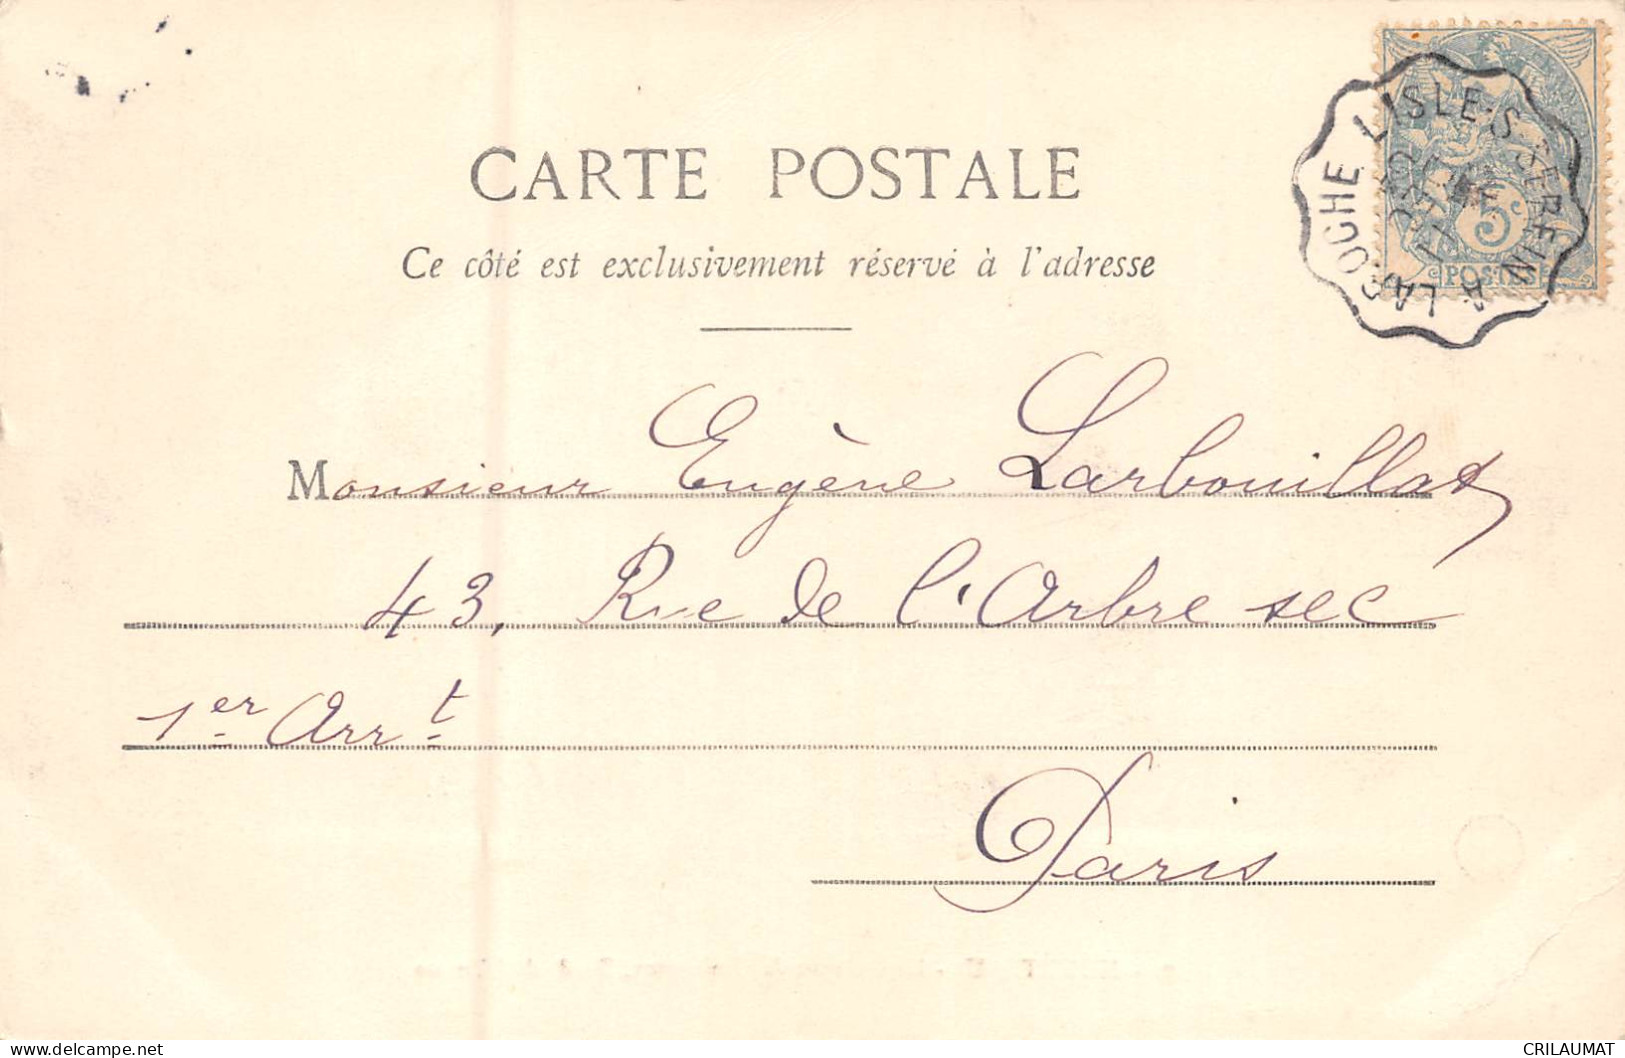 CARTE POSTALE
Ce côté est exclusivement réservé à l'adresse
LISLE-S-SEREIN À LAROCHE
5c
POSTES
Monsieur Eugène Larbouillat
43, Rue de l'Arbre sec
1er Arrt
Paris
delcampe.net
CRILAUMAT